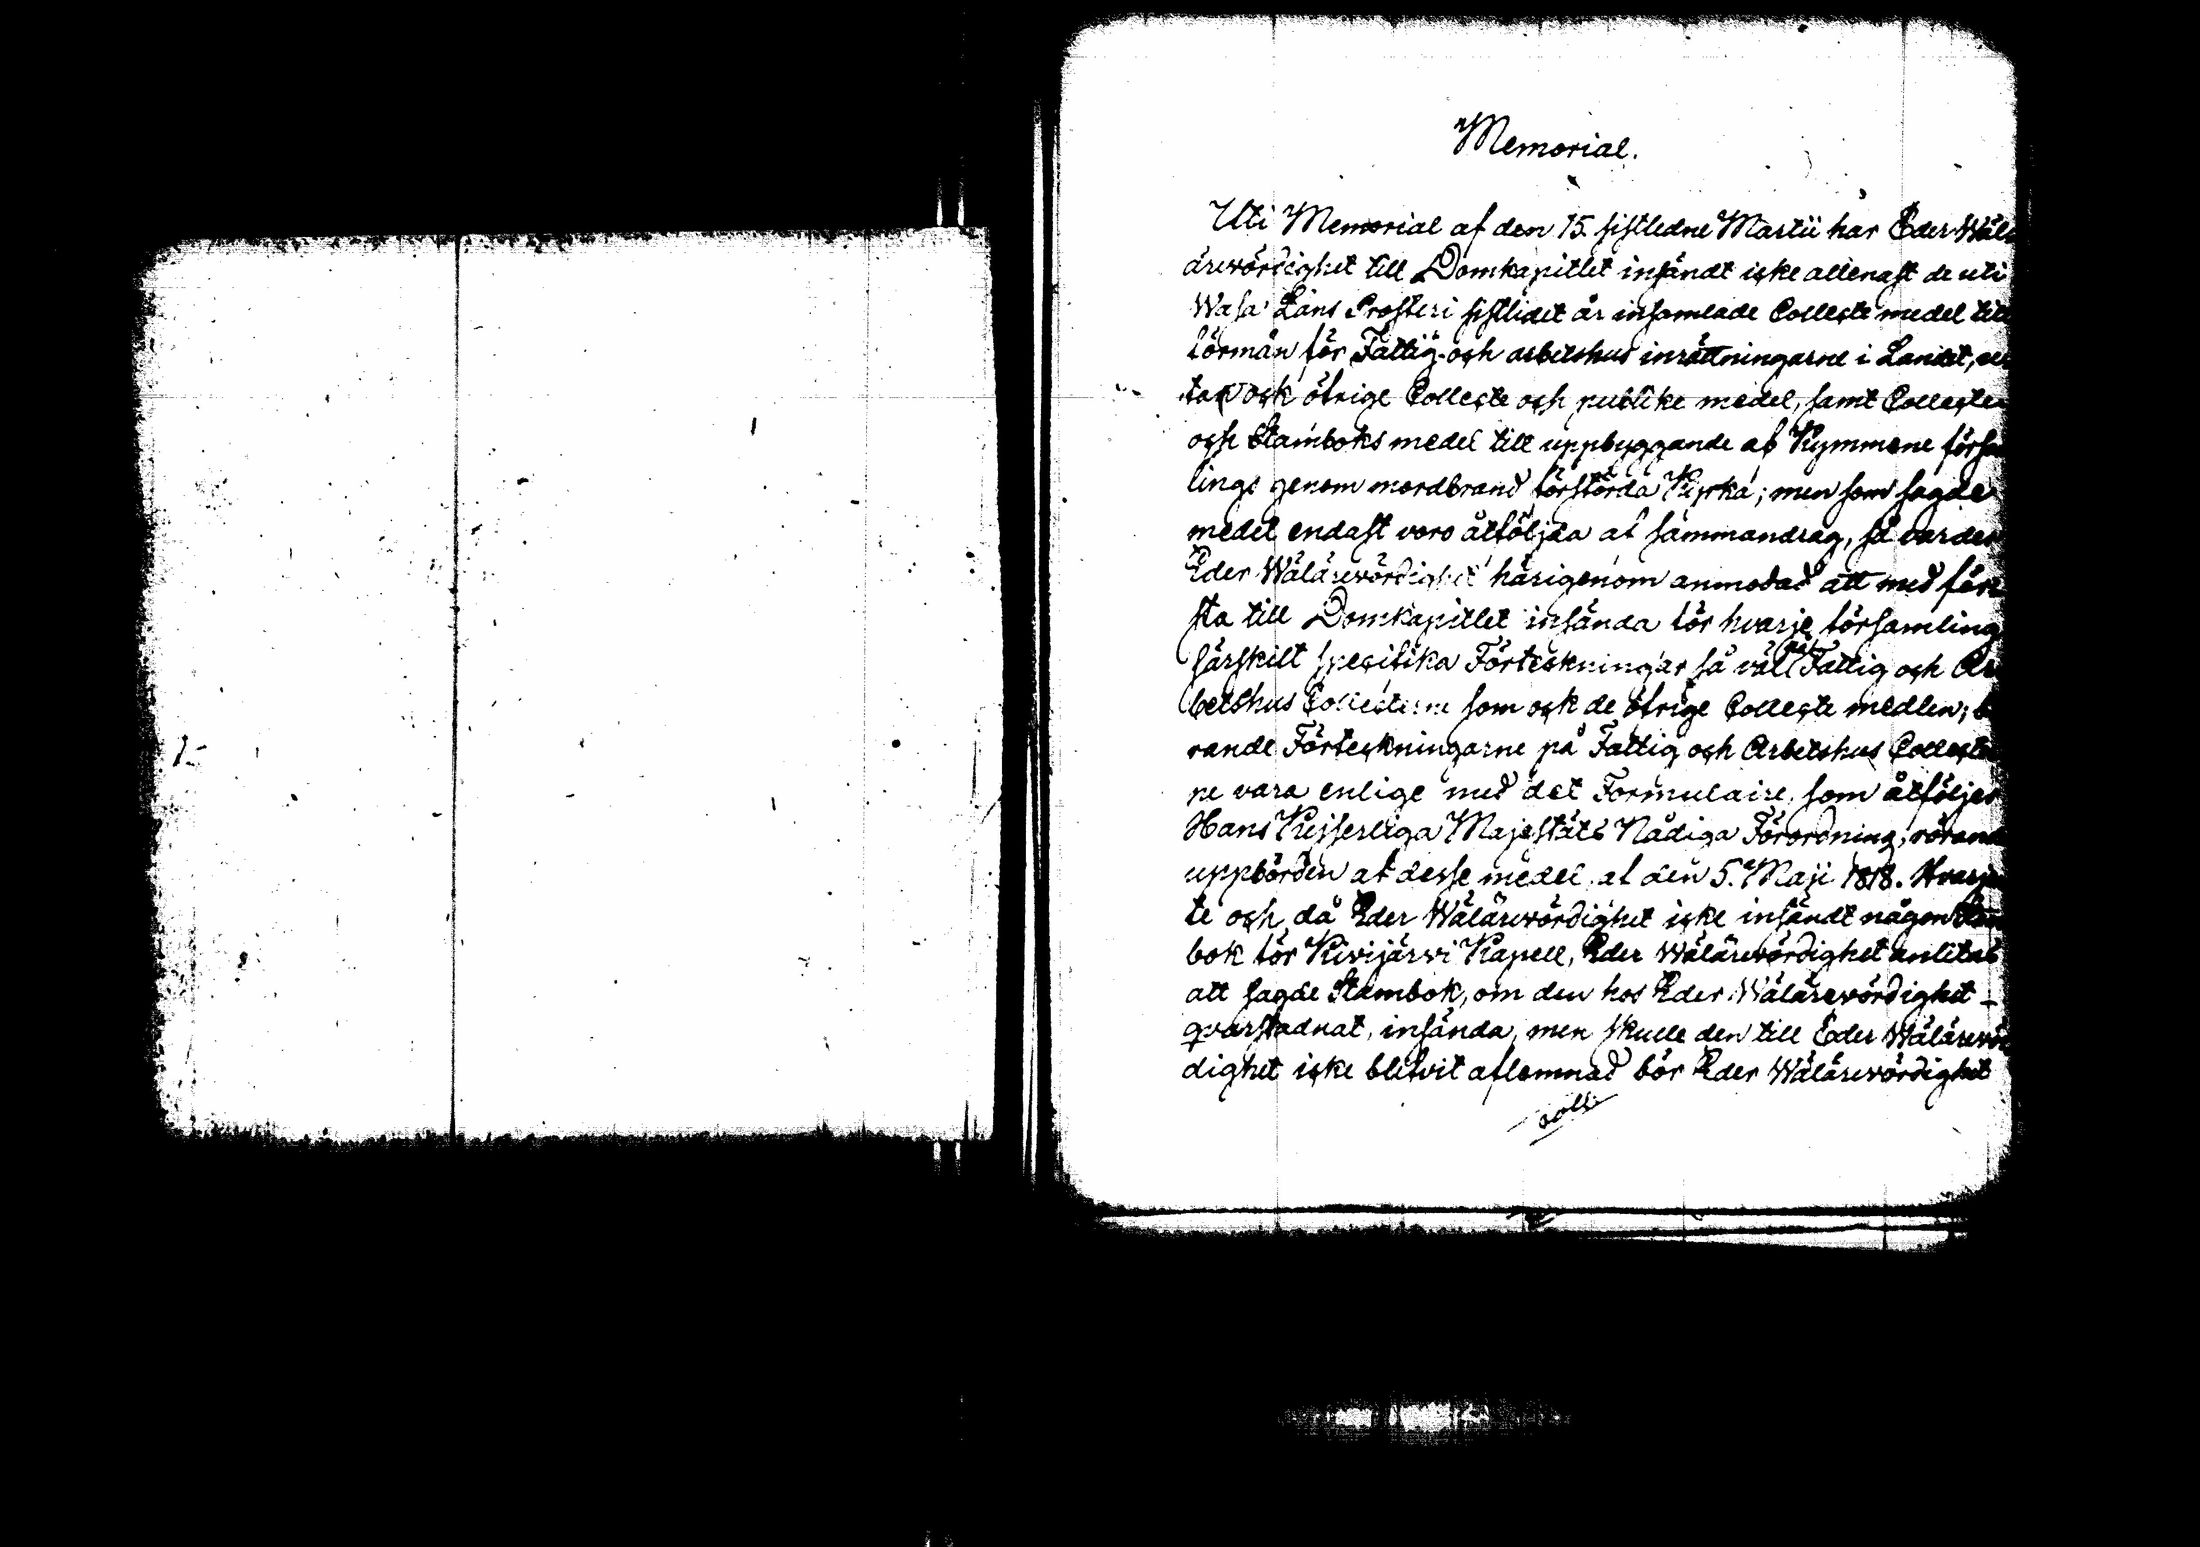 Memorial.
Uti Memorial af den 15. sistledne Martii har Eder Wäl
ärewördighet till Domkapitlet insändt icke allenast de uti
Wasa Läns Prosteri sistlidet år insamlade Collecte medel till
förmån för Fattig- och arbetshus inrättningarne i Landet,
ock öfrige Collecte och publike medel, samt Collecte
och Stamboks medel till uppbyggande af Kymmene förs
lings genom mordbrand förstörda Kyrka; men som sagde
medel endast voro åtföljda af sammandrag, så varder
Eder Wälärewördighet härigenom anmodad att medför
sta till Domkapitlet insända för hvarje församling
särskilt specifika Förteckningar så väl på Fattig och Ar
betshus Collecterne som ock de öfrige Collecte medlen; b
rande Förteckningarne på Fattig och Arbetshus Collecter
ne vara enlige med det Formulaire, som åtföljer
Hans Kejserliga Majestäts Nådiga Förordning, rörand
uppbörden af desse medel af den 5. Maji 1818. Hvarj
te och, då Eder Wälärewördighet icke insändt någon Stam
bok för Kivijärvi Kapell, Eder Wälärewördighet anlitas
att sagde Stambok, om den hos Eder Wälärewördighet
qvarstadnat, insända, men skulle den till Eder Wälärewör
dighet icke blifvit aflemnad bör Eder Wälärewördighet